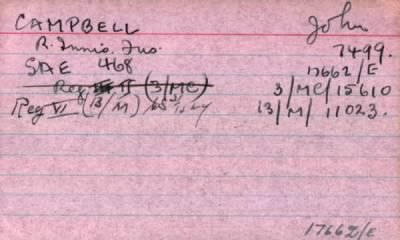 CAMPBELL John
R. Innis. Fus. 7499.
SAE 468 17662/E
Reg II (3/MC) 3/MC/15610
Reg VI (13/M) 13/M/11023.
17662/E